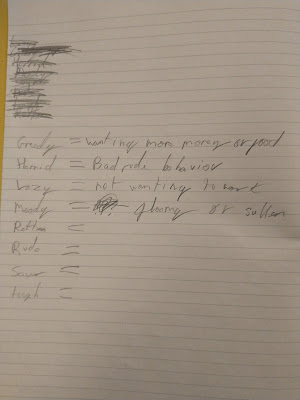 Gredy = wanting more money or food
Horrid = Bad rude behavior
Lazy = not wanting to work
Moody = gloomy or sullen
Rotten =
Rude =
Sour =
tough =